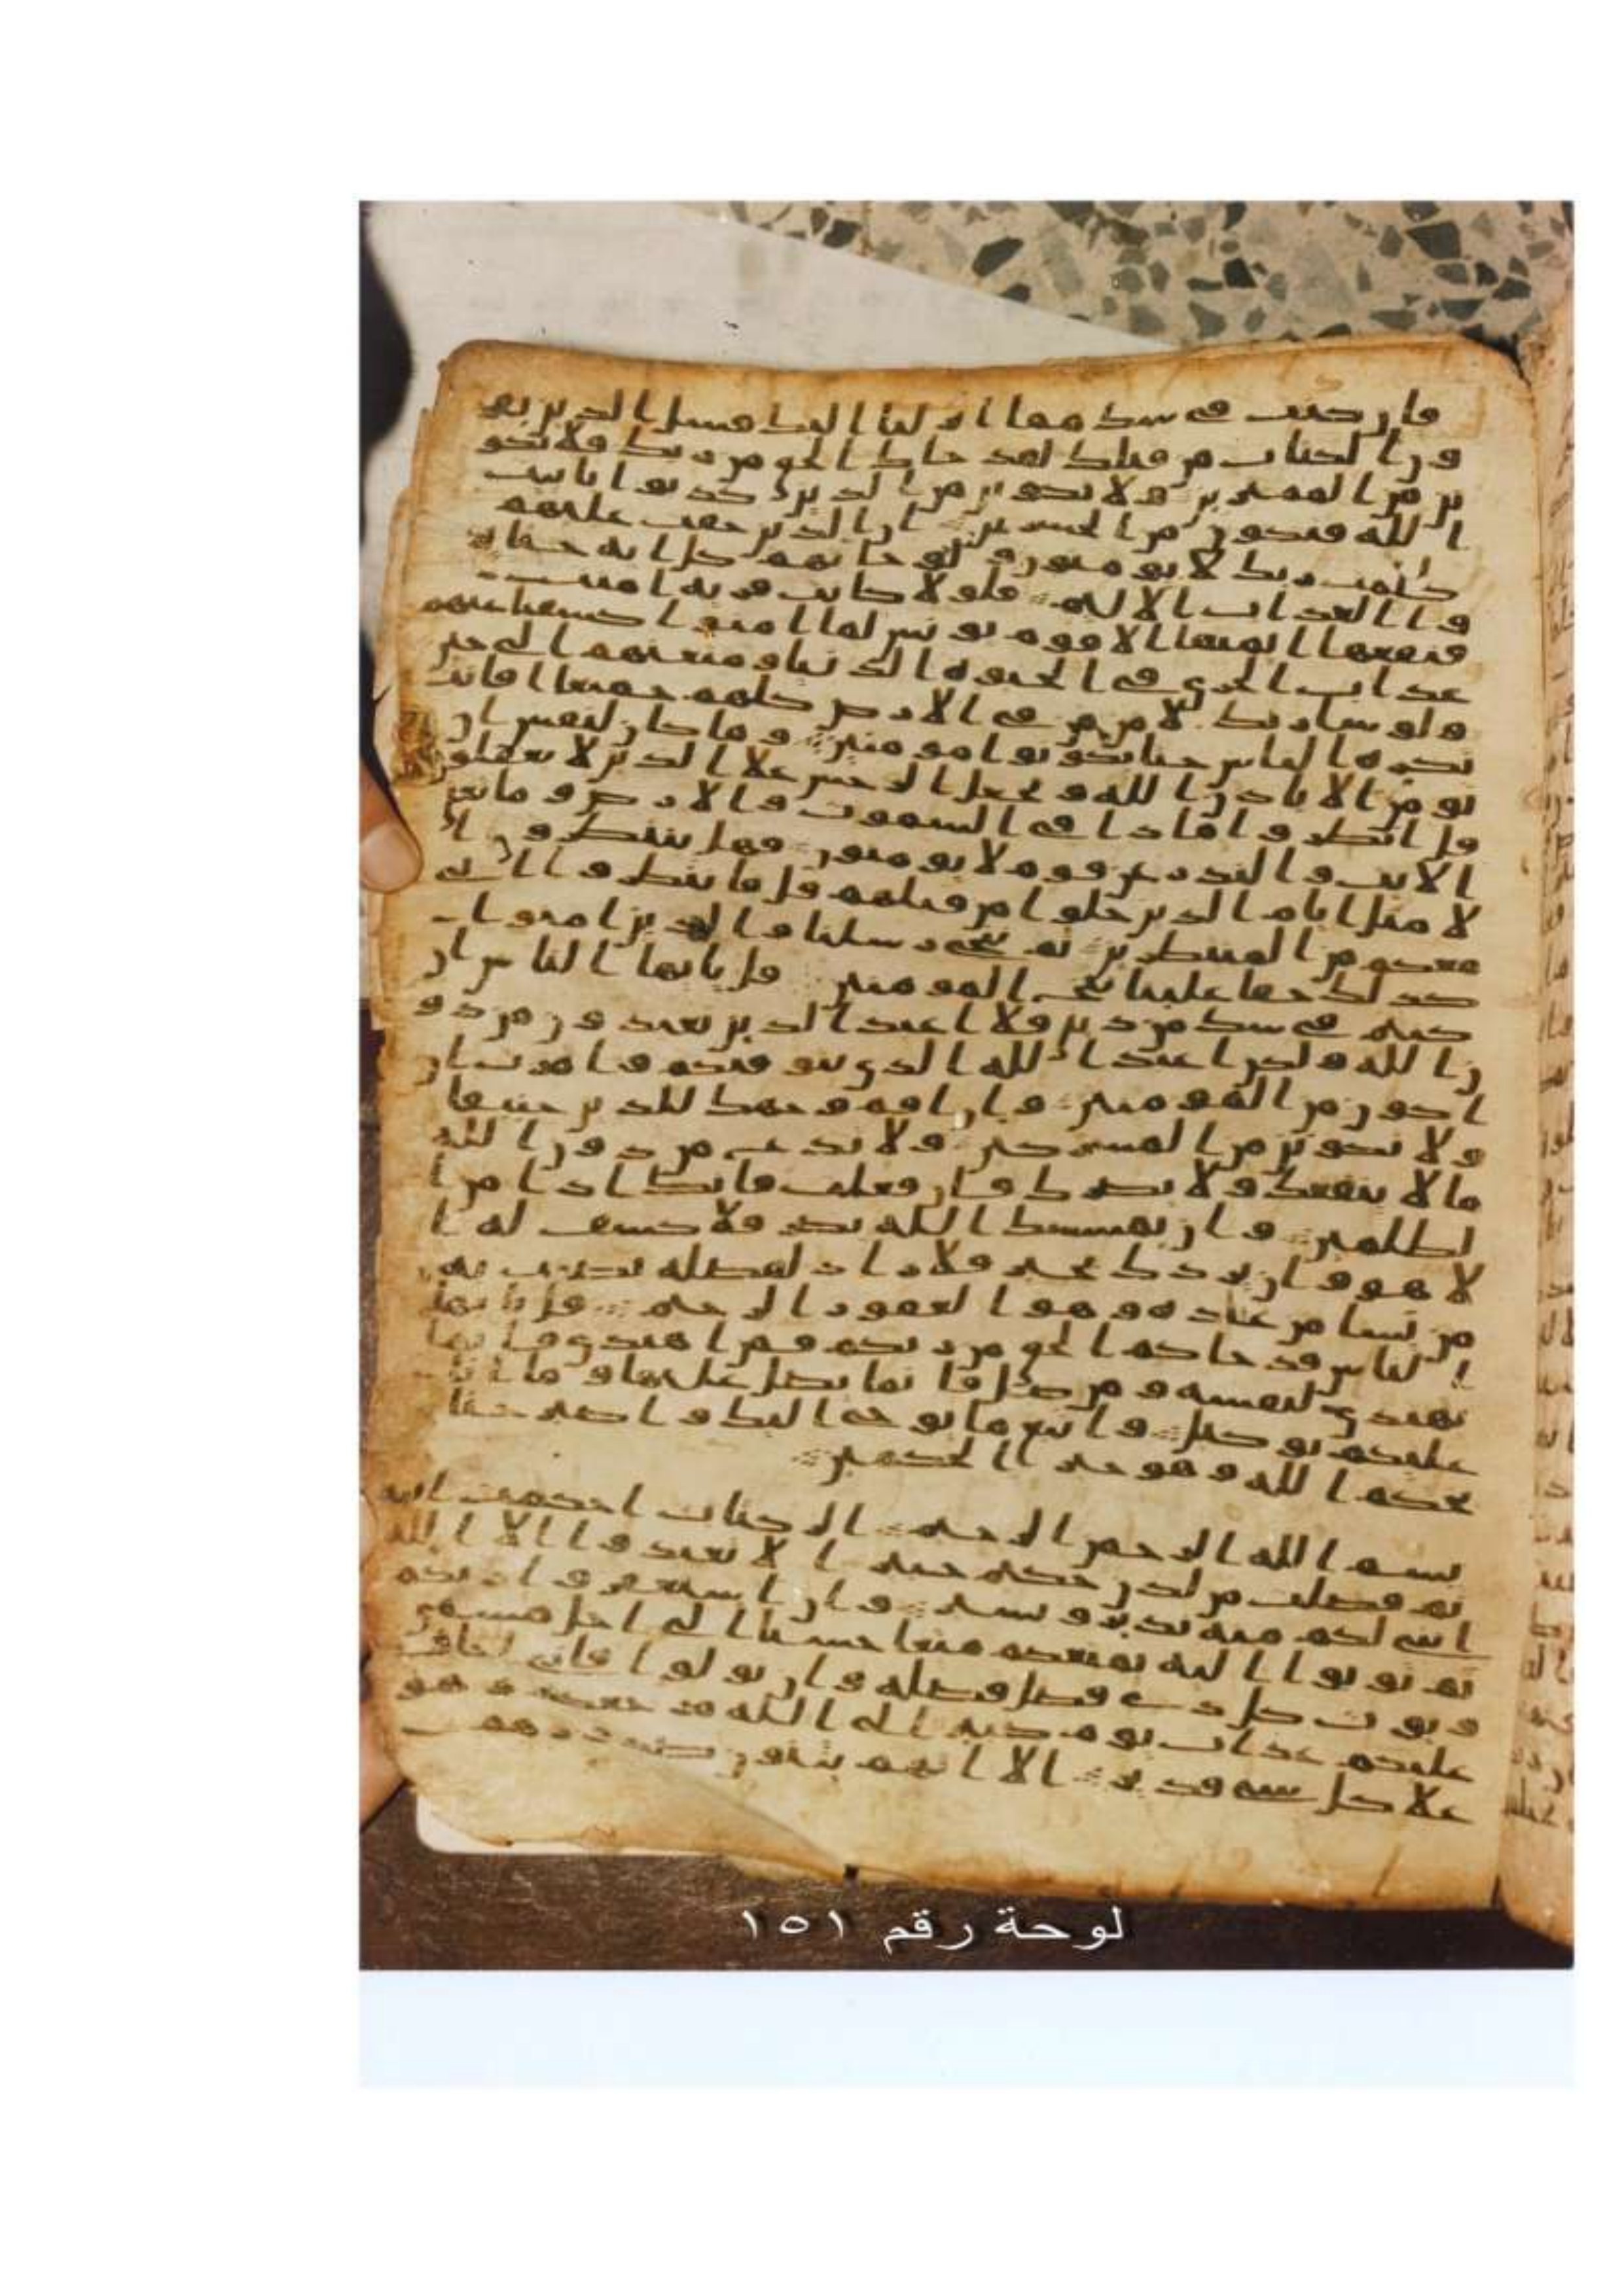 فان كنت في شك مما انزلنا اليك فسل الذين يقر
ون الكتاب من قبلك لقد جاك الحق من ربك فلا تكو
نن من الممترين ولا تكونن من الذين كذبوا بايت
الله فتكون من الخسرين ان الذين حقت عليهم
كلمت ربك لا يومنون ولو جاتهم كل ايه حتا ير
وا العذاب الاليم فلولا كانت قريه امنت
فنفعها ايمنها الا قوم يونس لما امنوا كشفنا عنهم
عذاب الخزي في الحيوه الدنيا ومتعنهم الى حين
ولو شا ربك لامن من في الارض كلهم جميعا افانت
تكره الناس حتا يكونوا مومنين وما كان لنفس ان
تومن الا باذن الله ويجعل الرجس علا الذين لا يعقلون
قل انظروا ماذا في السموت والارض وما تغن
الايت والنذر عن قوم لا يومنون فهل ينتظرون ا
لا مثل ايام الذين خلوا من قبلهم قل فانتظروا اني
معكم من المنتظرين ثم ننجي رسلنا والذين امنوا
كذلك حقا علينا ننج المومنين قل يايها الناس ان
كنتم في شك من ديني فلا اعبد الذين تعبدون من دو
ن الله ولكن اعبد الله الذي يتوفكم وامرت ان
اكون من المومنين وان اقم وجهك للدين حنيفا
ولا تكونن من المشركين ولا تدع من دون الله
ما لا ينفعك ولا يضرك فان فعلت فانك اذا من ا
لظلمين وان يمسسك الله بضر فلا كشف له ا
لا هو وان يردك بخير فلا راد لفضله يصيب به
من يشا من عباده وهو الغفور الرحيم قل يايها
الناس قد جاكم الحق من ربكم فمن اهتدي فانما
يهتدي لنفسه ومن ضل فانما يضل عليها وما انا
عليكم بوكيل واتبع ما يوحى اليك واصبر حتا
يحكم الله وهو خير الحكمين
بسم الله الرحمن الرحيم الر كتاب احكمت ايته
ثم فصلت من لدن حكيم خبير الا تعبدوا الا الله
انني لكم منه نذير وبشير وان استغفروا ربكم
ثم توبوا اليه يمتعكم متعا حسنا الى اجل مسمى
ويوت كل ذي فضل فضله وان تولوا فاني اخاف
عليكم عذاب يوم كبير الى الله مرجعكم وهو
علا كل شي قدير الا انهم يثنون صدورهم
لوحة رقم ١٥١